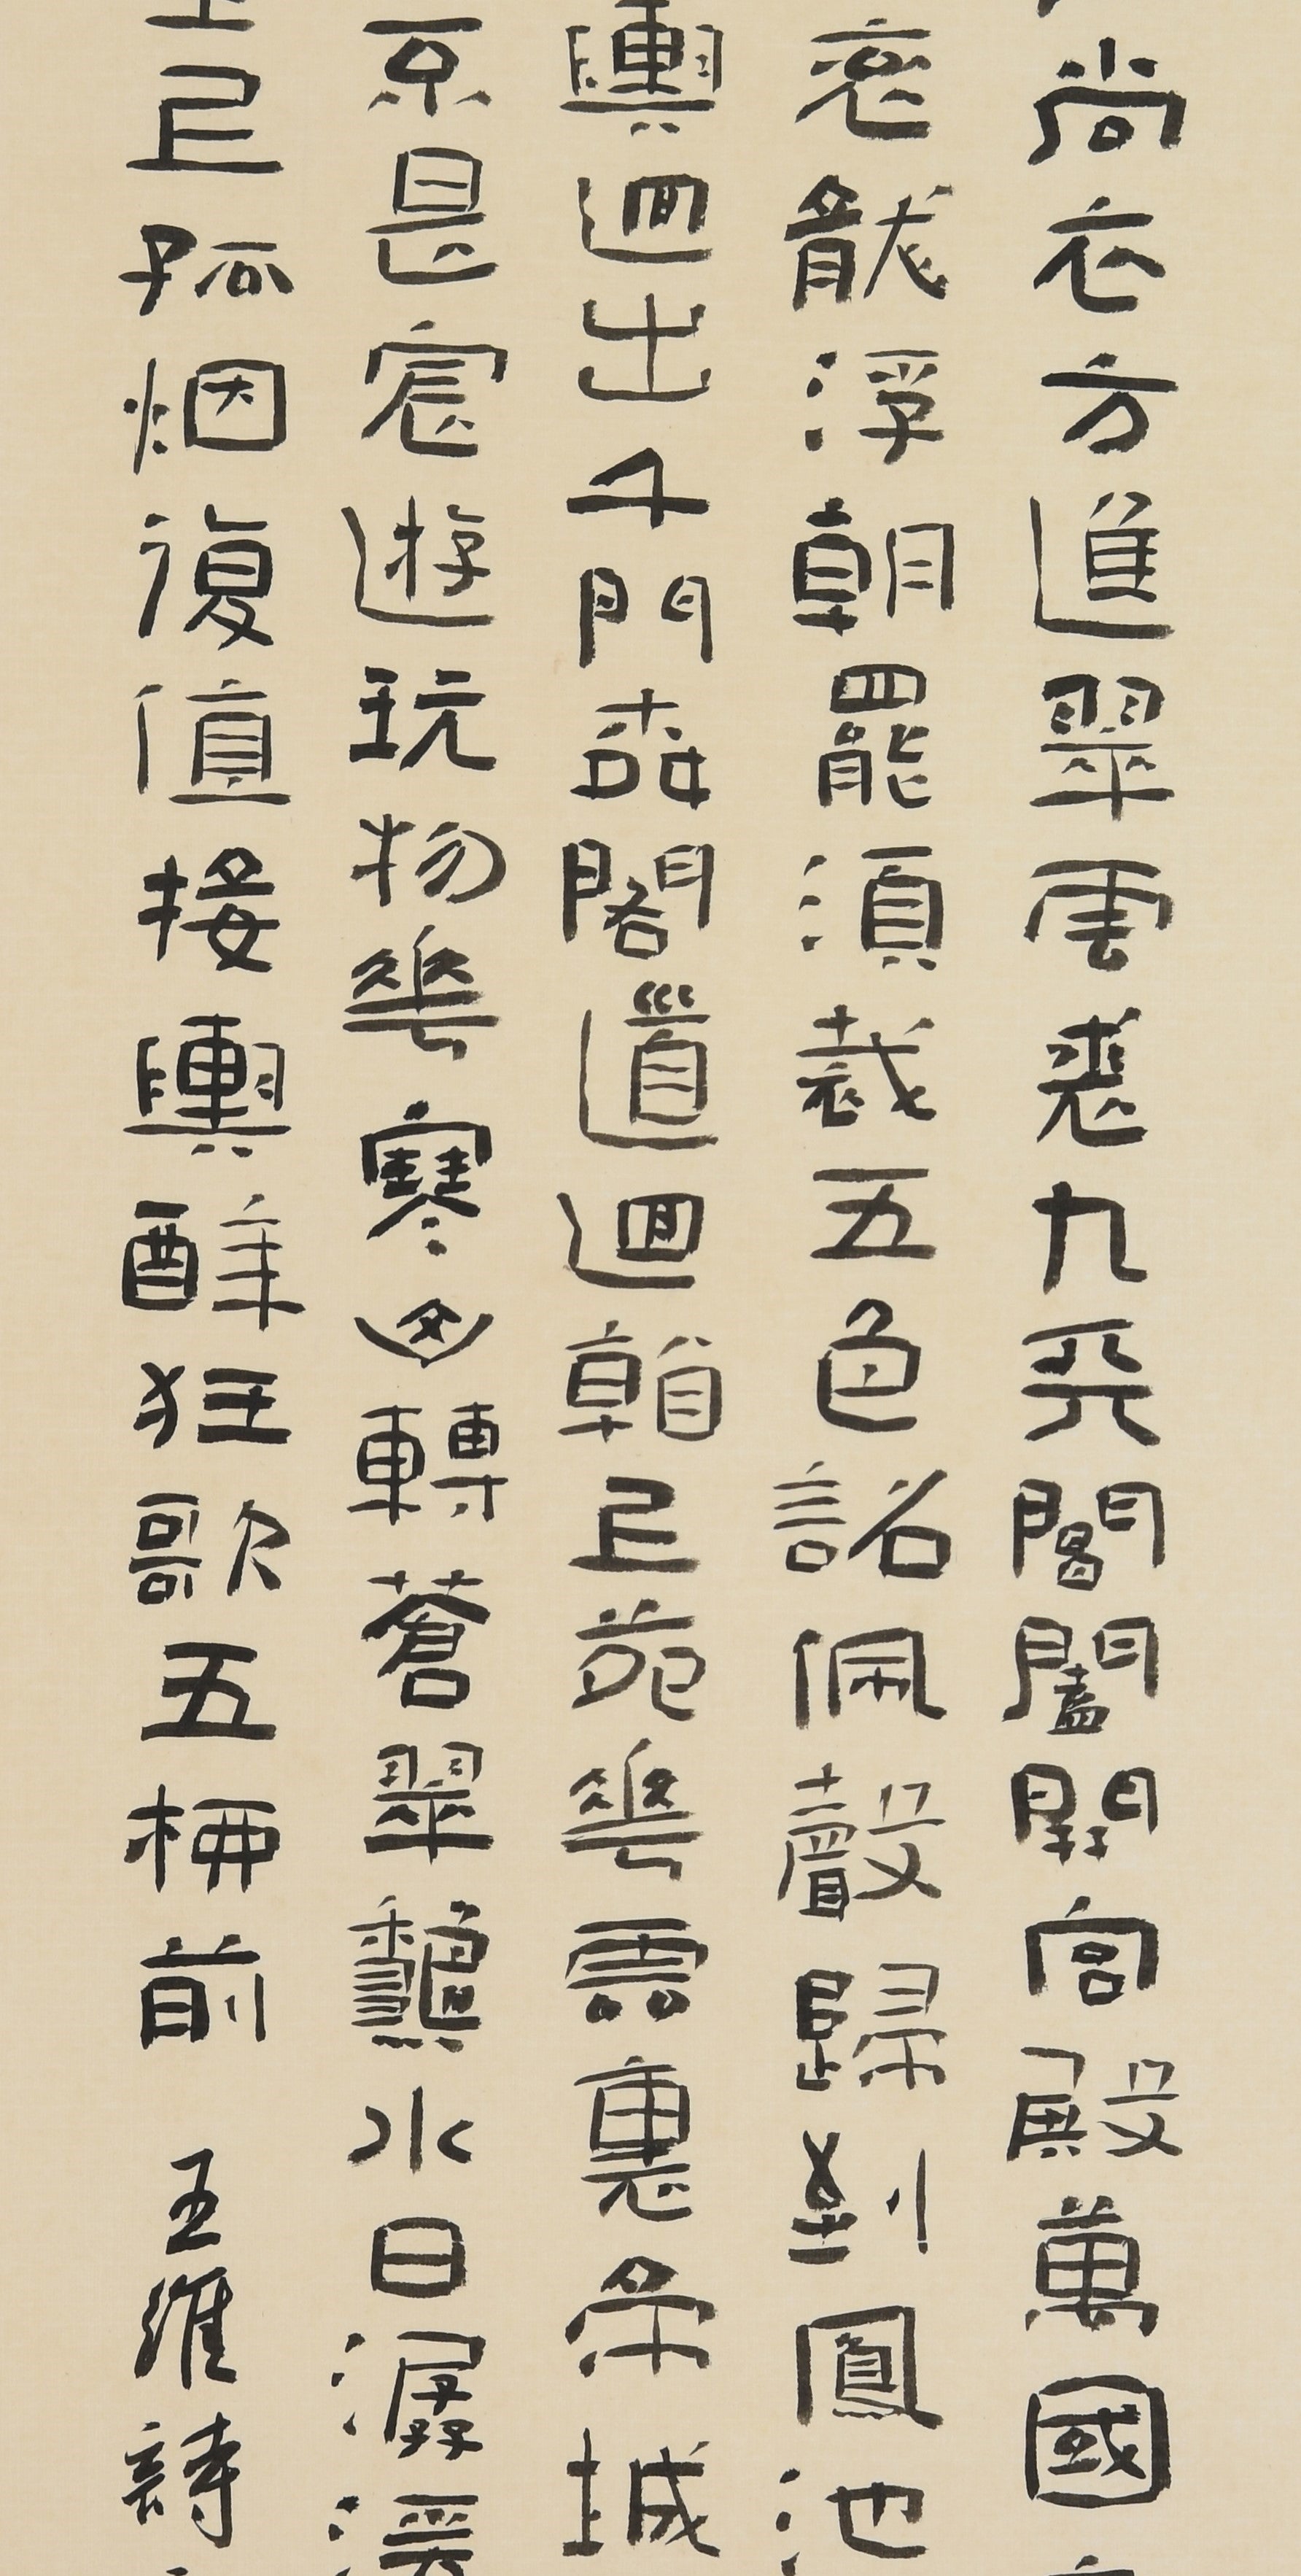 尚衣方進翠雲裘九天閶闔開宮殿萬國
袞龍浮朝罷須裁五色詔佩聲歸到鳳池
輿迴出千門柳閣道迴看上苑花雲裏帝城
不是宸遊玩物華寒山轉蒼翠秋水日潺湲
上孤烟復值接輿醉狂歌五柳前 王維詩